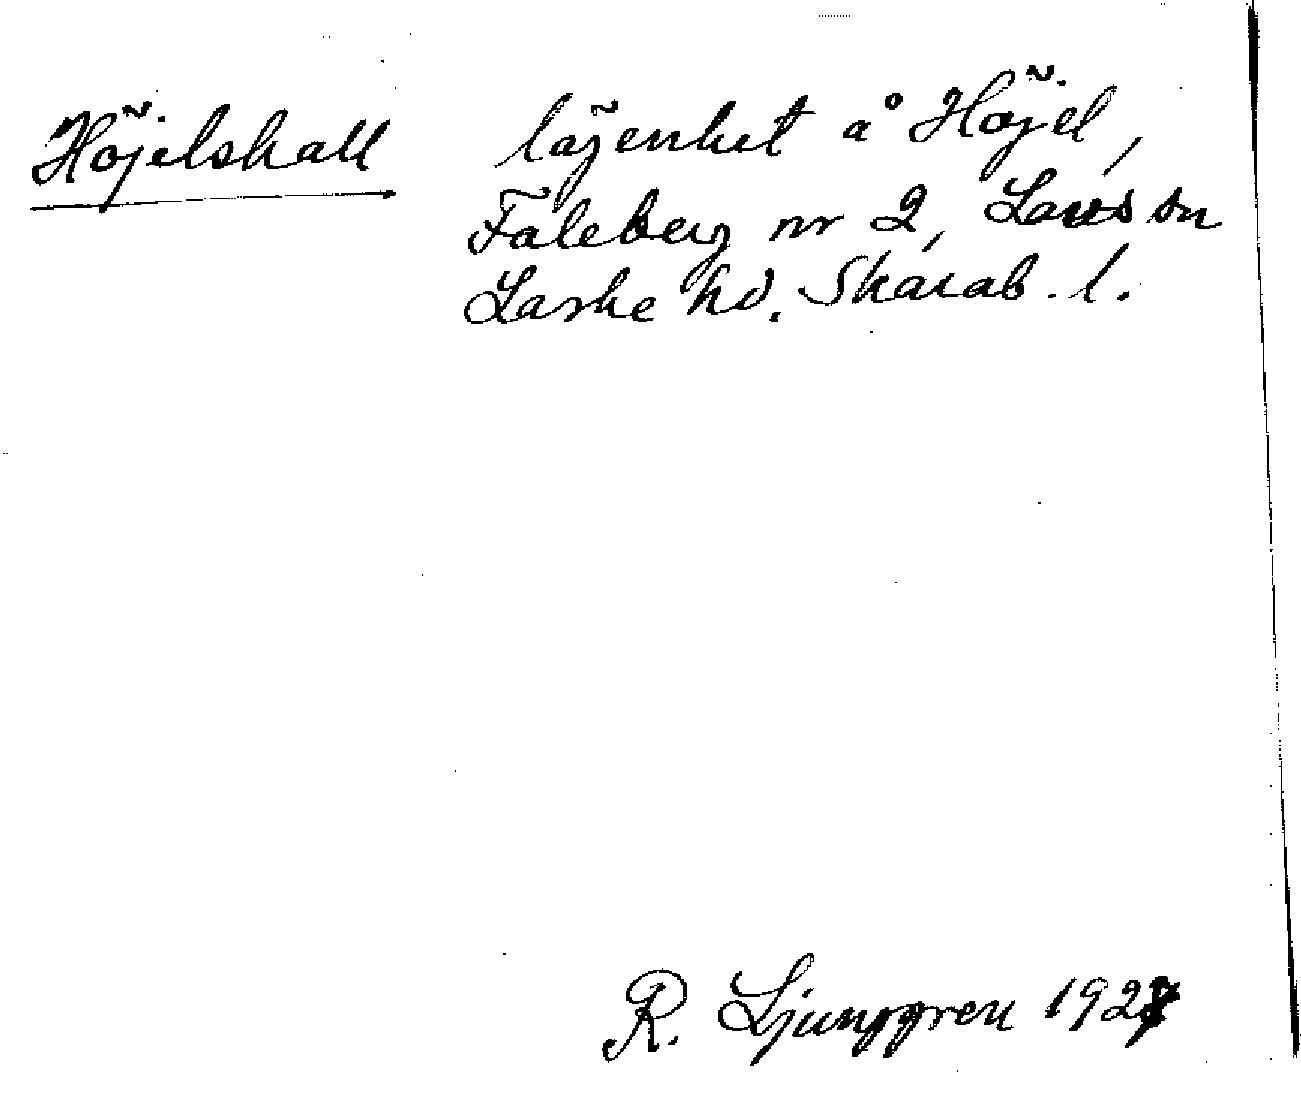 Höjelshall lägenhet å Höjel,
Fåleberg nr 2, Lavs sn
Laske hd. Skarab. l.
R. Ljunggren 1927